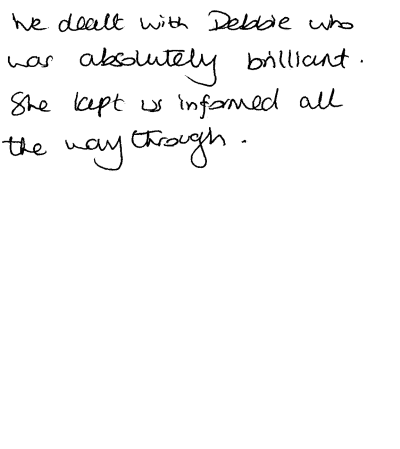 We dealt with Debbie who
was absolutely brilliant.
She kept us informed all
the way through.